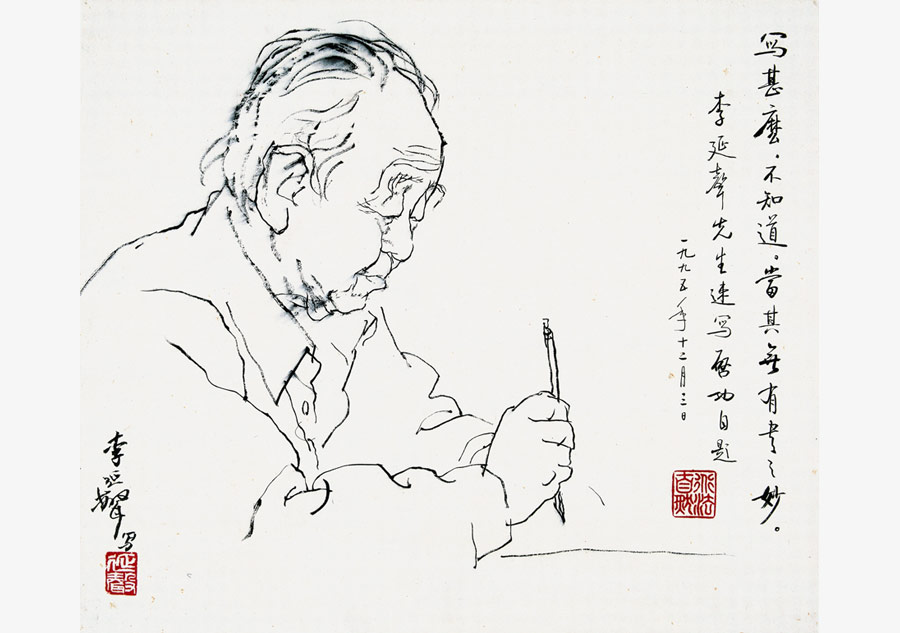 写甚麼，不知道。當其無有書之妙。
李延聲先生速写 啓功自題
一九九五年十二月三日
李延聲写
延聲